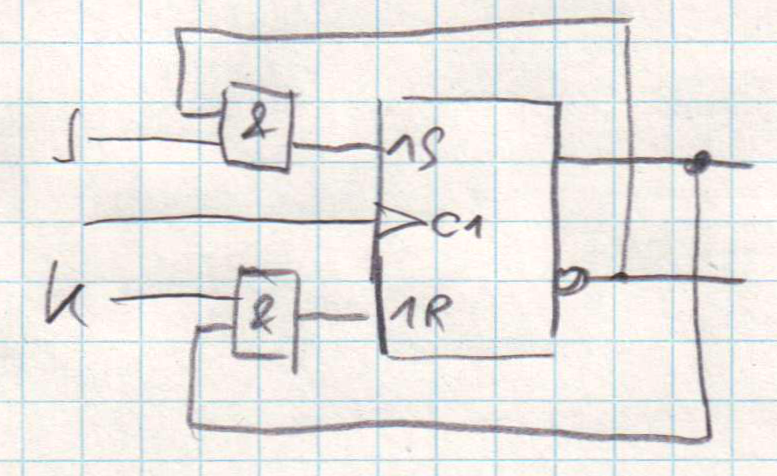 J
&
1S
C1
K
&
1R